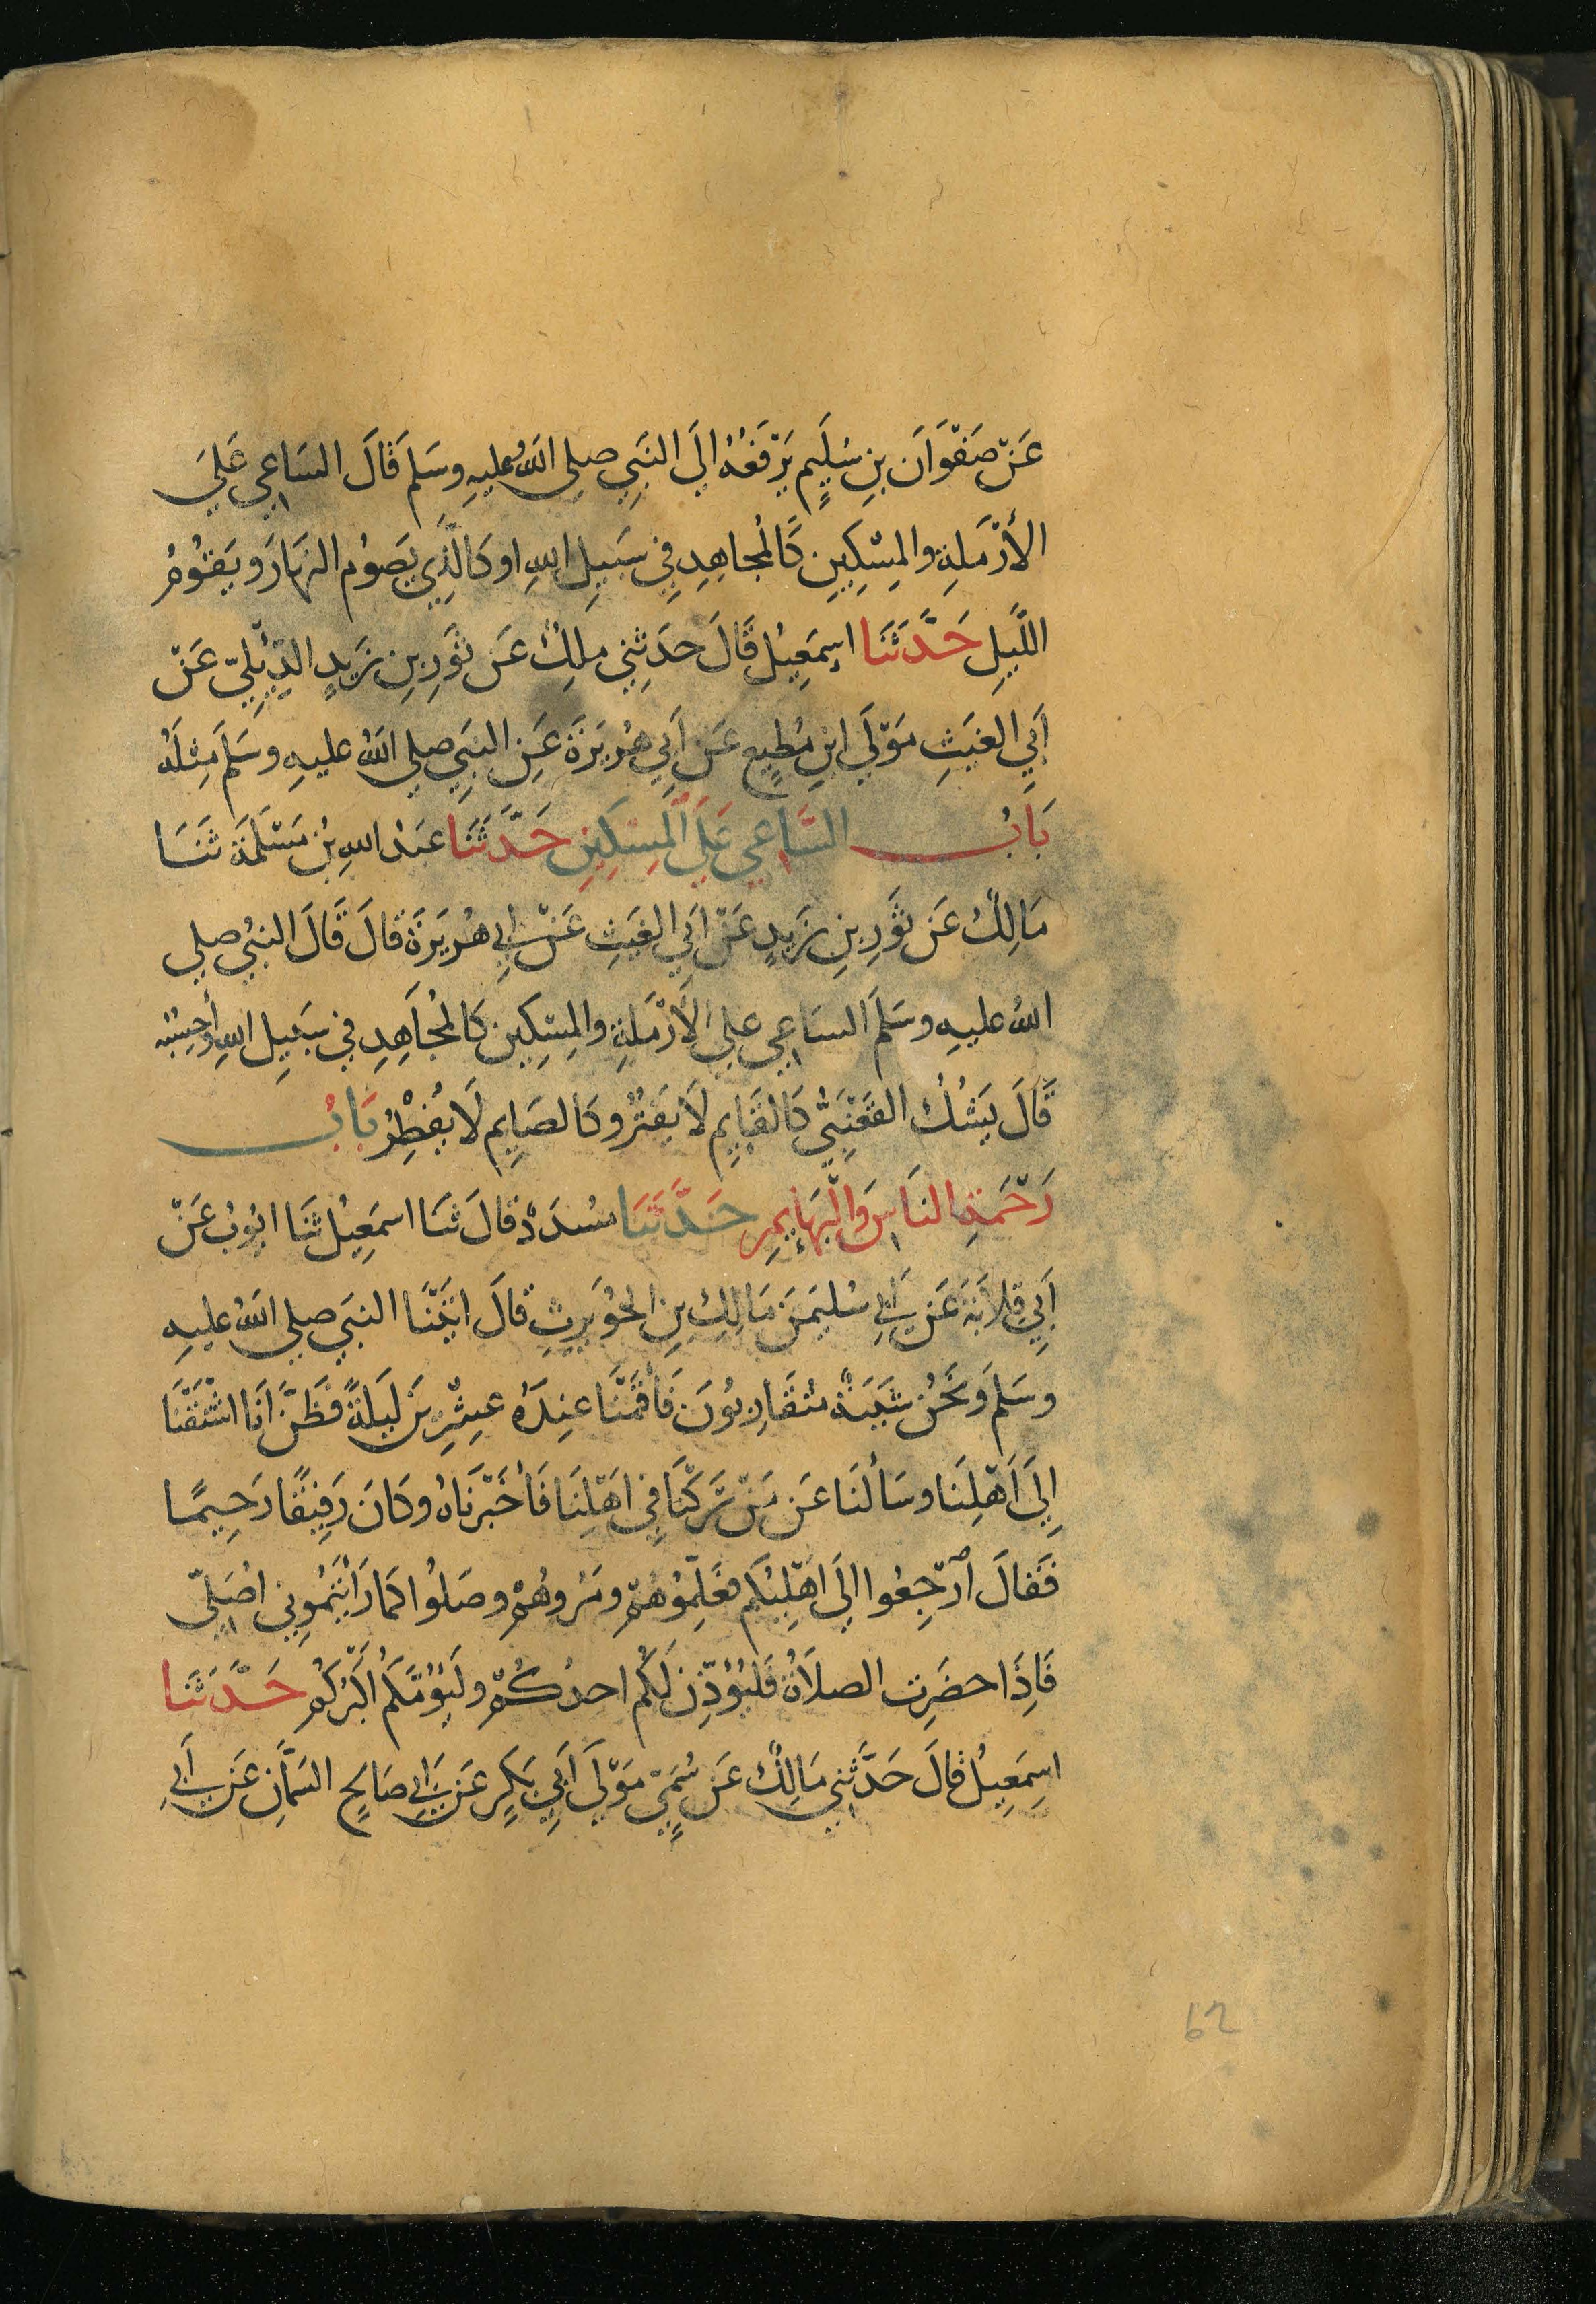 عَنْ صَفْوَانَ بنِ سُلَيمٍ يَرْفَعُهُ الَى النَبِي صلى اللهُ عليهِ وسَلم قَالَ السَاعِي عَلَى
الأَرْمَلةِ والمِسْكِينِ كَالمُجاهِدِ فِي سَبيلِ اللهِ او كَالَّذِي يَصَومُ النهَارَ وَيَقُومُ
اللَّيلِ حَدَّثَنَا اسمَعِيلُ قَالَ حَدَثِني ملِكٌ عَن ثَورِ بنِ زَيدٍ الدِّئِلِيّ عَنْ
أَبي الغَيثِ مَوْلَى ابنِ مُطِيعٍ عَن أَبي هُرَيرَةَ عَنِ النَبِي صلى اللهُ عليهِ وسَلم مِثلَهُ
بَابُ السَّاعِي عَلَى المِسكِينِ حَدَّثَنَا عبدُ اللهِ بنُ مَسْلَمَةَ ثَنَا
مَالِكٌ عَن ثَورِ بنِ زَيدٍ عَنْ أَبي الغَيثِ عَنْ أبي هُرَيَرَةَ قالَ قَالَ النبيُ صلى
اللهُ عليهِ وسَلمَ السَاعِي على الأَرْمَلةِ والمِسْكِينِ كَالمُجَاهِدِ في سَبيلِ اللهِ وأحسِبُه
قَالَ يَشُكُ القَعْنَبِيُّ كَالقَايِمِ لَا يَفتُرُ وكَالصَايِمِ لَا يُفْطِرُ بَابُ
رَحْمَةِ النَاسِ وَالْبَهَايِمِ حَدَّثَنَا مُسدَدٌ قالَ ثنَا اسمَعِيلُ ثَنَا ايُوبُ عَنْ
أَبي قِلابَةَ عَن أبي سُليمَن مَالِكِ بنِ الحُوَيرِثِ قالَ اتَيْنَا النبَي صلى اللهُ عليهِ
وسَلم وَنَحْنُ شَبَبَةٌ مُتقَارِبُونَ فَأقَمْنَا عِندَهُ عِشْرِينَ لَيلَةً فَظَنَّ أَنَا اشْتَقْنَا
إِلَى أَهْلِنَا وسَألَنَا عَن مَنْ تَرَكْنَا فِي أَهْلِنَا فَأَخْبَرْنَاهُ وكَانَ رَفِيقًا رَحِيمًا
فَقالَ ارْجِعُوا الَى اهْلِيكُم فعَلِّمُوهُمْ ومُرُوهُمْ وصَلُوا كَمَا رَأَيْتُمُونِي اصَلِّي
فَاِذَا حضَرَتِ الصلاَةُ فَليُؤَذِّن لَكُم احدُكُمْ ولْيَؤُمَّكُم أَكْبَرُكُم حَدَّثَنَا
اسِمَعِيلُ قالَ حَدَّثَنِي مَالِكٌ عَن سُمَيٍّ مَوْلَى أَبي بَكرٍ عَن أبي صَالحٍ السَمَّانِ عَن أبي
62